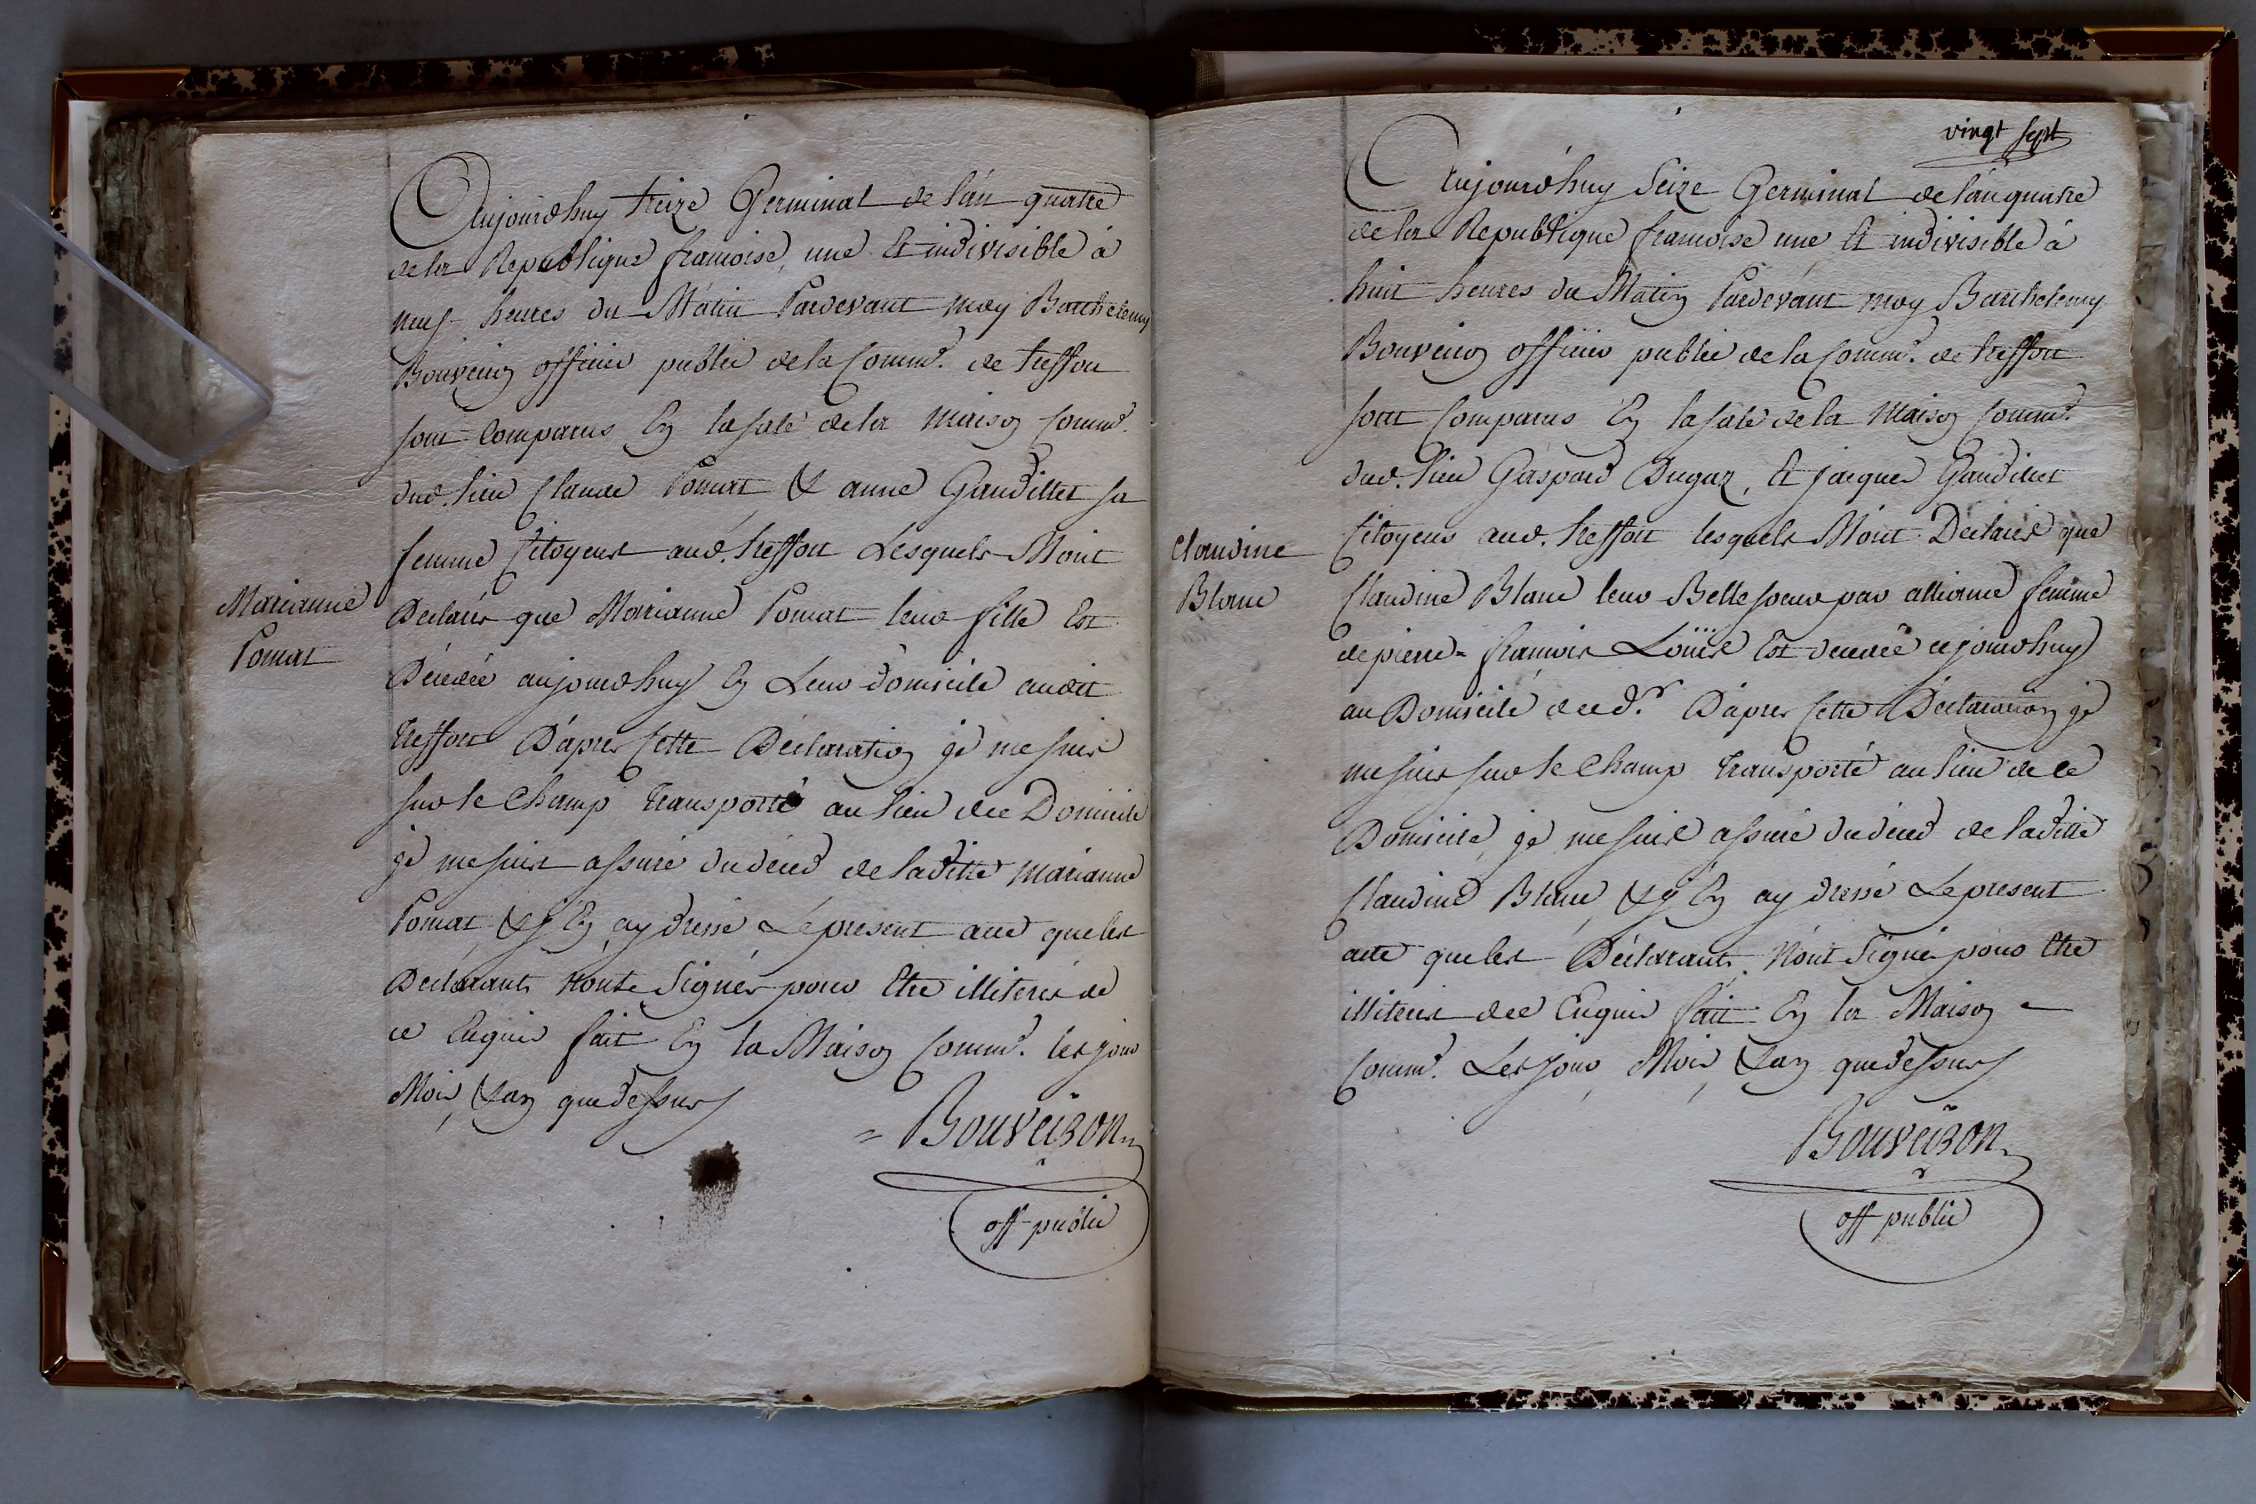 Aujourdhuy treize Germinal de l'an quatre
de la Republique francoise, une & indivisible à
neuf heures du Matin Pardevant moy Barthelemy
Bouveiron officier public de la Comm.e de treffort
sont Comparus En la sale de la Maison Comm.e
dud. lieu Claude Pomat & anne Gaudillet sa
femme Citoyens aud. treffort Lesquels M'ont
Marianne
Pomat
Declarés que Marianne Pomat leur fille Est
Décédée aujourdhuy En Leur domicile audit
Treffort D'aprés Cette Déclaration je me suis
sur le Champ Transporté au lieu dee Domicile
je me suis assuré du décéd de laditte Marianne
Pomat, & j'En ay dressé Le présent acte que les
Déclarants n'ont Signés pour Etre illiterés de
ce Enquis fait En la Maison Comm.e les jour
Mois, & an que dessus
Bouveiron
off public
vingt sept
Aujourd'huy Seize Germinal de l'an quatre
de la Republique francoise une & indivisible à
huit heures du Matin Pardevant moy Barthelemy
Bouveiron officier public de la Comm.e de treffort
sont Comparus En la sale de la Maison Comm.e
dud. lieu Gaspard Dugaz, & jacques Gaudillet
Citoyens aud. treffort lesquels M'ont Declarés que
Claudine
Blanc
Claudine Blanc leur Belle soeur par alliance femme
de pierre francois Louis Est décédée cejourdhuy
au Domicile de ced.r D'aprés Cette Déclaration je
me suis sur le Champ Transporté au lieu de ce
Domicile, je me suis assuré du décéd de laditte
Claudine Blanc, & j'En ay dressé Le présent
acte que les Déclarants N'ont Signé pour Etre
illiterés dee Enquis fait En la Maison
Comm.e Les jour, Mois, & an que dessus
Bouveiron
off public